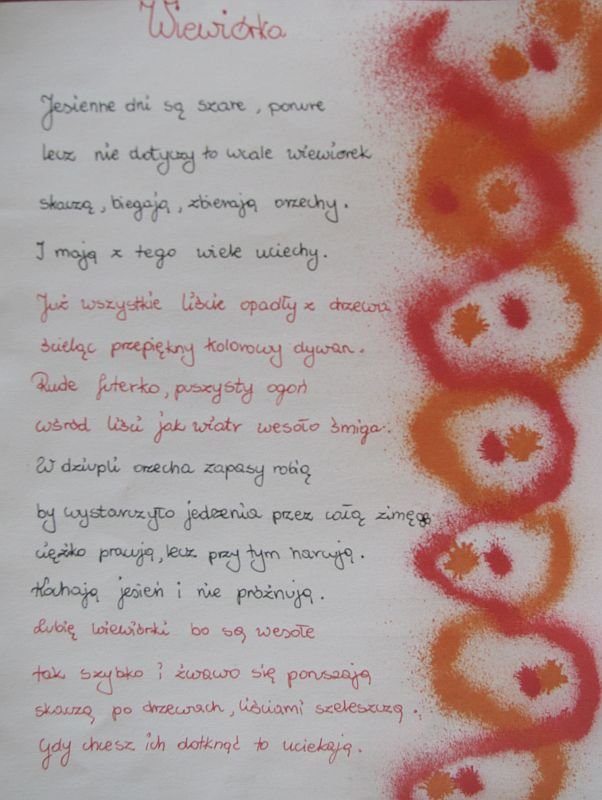 Wiewiórka
Jesienne dni są szare, ponure
lecz nie dotyczy to wcale wiewiórek
skaczą, biegają, zbierają orzechy.
I mają z tego wiele uciechy.
Już wszystkie liście opadły z drzewa
ścieląc przepiękny kolorowy dywan.
Rude futerko, puszysty ogon
wśród liści jak wiatr wesoło śmiga.
W dziupli orzecha zapasy robią
by wystarczyło jedzenia przez całą zimę
ciężko pracują, lecz przy tym harcują.
Kochają jesień i nie próżnują.
Lubię wiewiórki bo są wesołe
tak szybko i żwawo się poruszają
skaczą po drzewach, liściami szeleszczą.
Gdy chcesz ich dotknąć to uciekają.